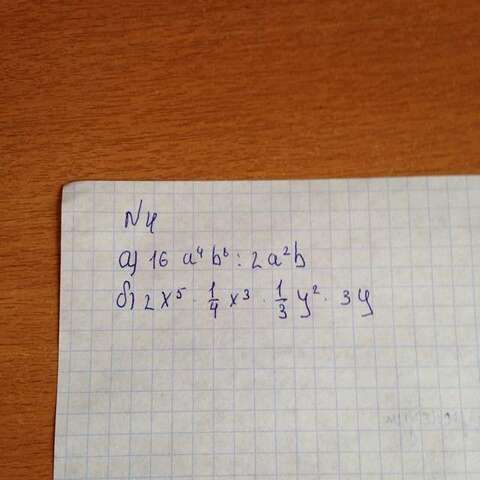 N4
а) 16 a⁴ b⁶ : 2a²b
б) 2x⁵ · 1/4 x³ · 1/3 y² · 3y